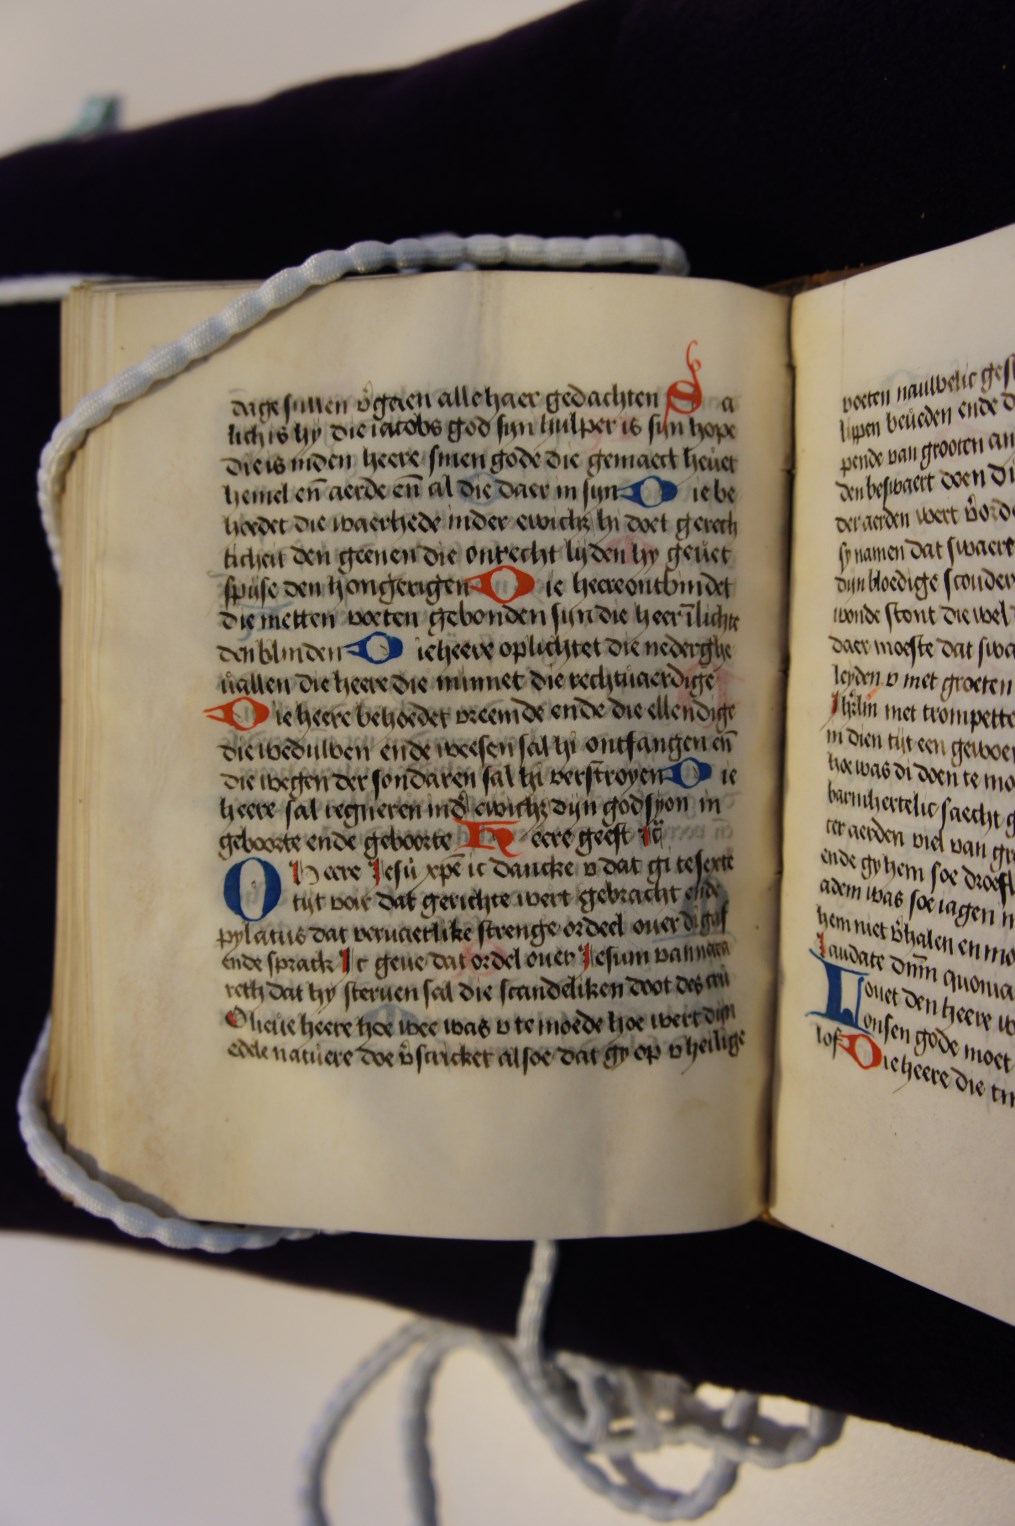 dage sullen v̾gaen alle haer gedachten Sa
lich is hy die iacobs god sijn hulper is sijn hope
die is inden heere sinen gode die gemaect heuet
hemel en̄ aerde en̄ al die daer in sijn Die be
hoedet die waerhede inder ewich; hi doet gerech
ticheit den geenen die onrecht lijden hy geuet
spijse den hongerigen Die heere ontbindet
die metten voeten gebonden sijn die heer v̄lichte
den blinden Die heere oplichtet die nederghe
uallen die heere die minnet die rechtuaerdige
Die heere behoedet vreemde ende die ellendige
die weduwen ende weesen sal hi ontfangen en̄
die wegen der sondaren sal hi verstroyen Die
heere sal regneren ind̾ ewich; dijn god syon in
geboorte ende geboorte Heere geeft
O Heere Jesu xpē ic dancke v dat gi te sexte
tijt voir dat gerichte wert gebracht ende
pylatus dat veruaerlike strenge ordeel ouer di gaf
ende sprack Ic geue dat ordel ouer Jesum van naza
reth dat hy steruen sal die scandeliken doot des cru
O lieue heere hoe wee was v te moede hoe wert dijn
edele natuere doe v̾scricket alsoe dat gy op v heilige
voeten nauwelic
lipen beueden ende
pende van grooten
den beswaert doen
der aerden wert
sy namen dat swaere
dijn bloedige scouder
wonde stont die wel
daer moeste dat
leyden v met groeten
Jhr̄lm met trompette
in dien tijt een
hoe was di doen te mo
barmhertelic saecht
ter aerden viel van
ende gy hem soe
adem was soe iagen
hem niet v̾halen en mo
Laudate dn̄m quonia
Louet den heere
onsen gode moet
lof Die heere die